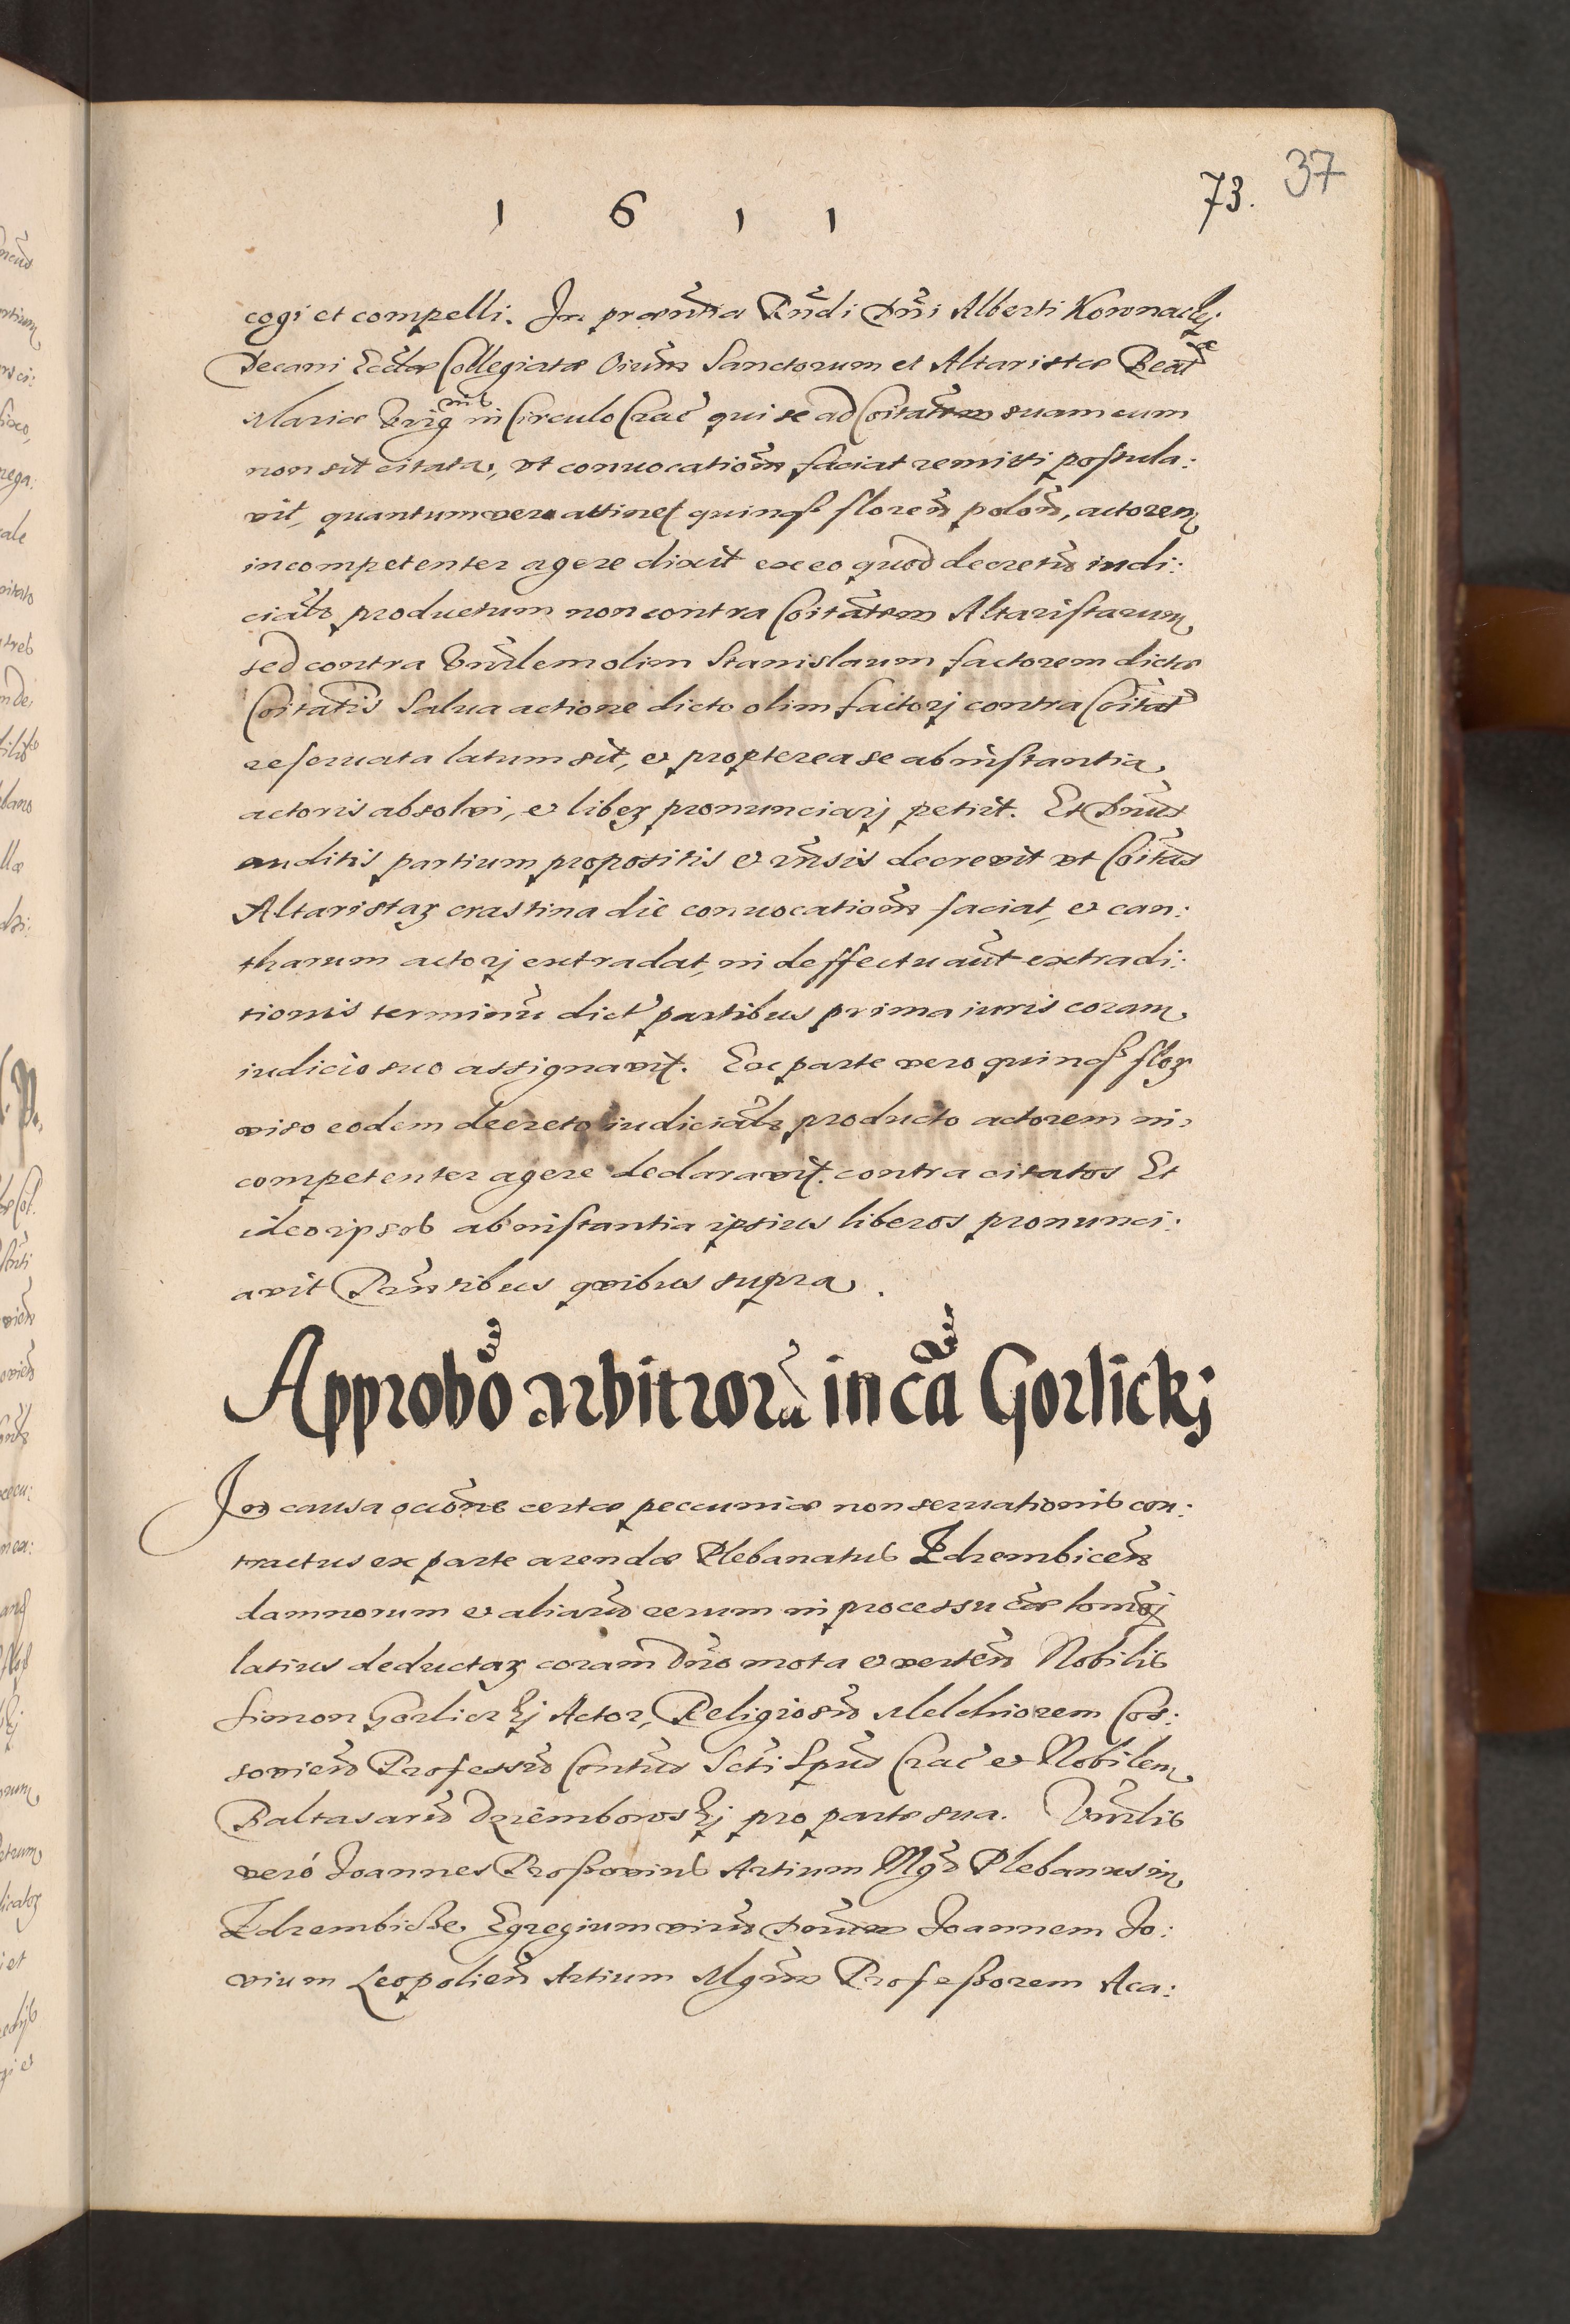 1 6 1 1
73. 37
cogi et compelli. In praesñtia Rñdi Dñi Alberti Kownackj
Decani Ecclæ Collegiatæ Oiũm Sanctorum et Altaristæ Beatæ
Mariæ Virgnis in Circulo Crac̃ qui se ad Coitatẽm suam cum
non sit citata, vt conuocatioñm faciat remitti postula:
vit, quantum vero attinet quinqß floreñ poloñ, actorem
incompetenter agere dixit ex eo quod decretũ iudi:
cialẽ productum non contra Coitatẽm Altaristarum,
sed contra Viril̃em olim Stanislaum factorem dictæ
Coitatĩs salua actione dicto olim factorj contra Coitat̃
reseruata latum sit, et propterea se ab instantia
actoris absolvi, et liberʒ pronunciarj petiit. Et Dnũs
auditis partium propositis et rñsis decrevit vt Coitãs
Altaristarʒ crastina die conuocatioñm faciat, et can:
tharum actorj extradat, in deffectu aũt extradi:
tionis terminũ dict' partibus prima iuris coram
iudicio suo assignavit. Ex parte vero quinqß florʒ
viso eodem decreto iudicialĩ producto actorem in:
competenter agere declaravit. contra citatos Et
ideo ipsos ab instantia ipsius liberos pronunci:
avit Pñtibus quibus supra.
Approbõ arbitrorũ in cã Gorlickj
In causa occõne certæ peccuniæ non seruationis con:
tractus ex parte arendæ Plebanatus Zdrembiceñ
damnorum et aliarũ rerum in processu cãæ homõj
latius deductarʒ coram Dño mota et verteñ Nobilis
Simon Gorlickj Actor, Religiosũ Melchiorem Cos:
sovieñ Professũ Contũs Scti Spũs Crac̃ et Nobilem
Baltasarũ Dziemboroskj pro parte sua. Vñrlis
verò Joannes Proßovius Artium Mgr̃ Plebanus in
Zdrembicße, Egregium virũ Dõum Joannem Jo:
vium Leopolieñ Artium Mgr̃m Profeßorem Aca: